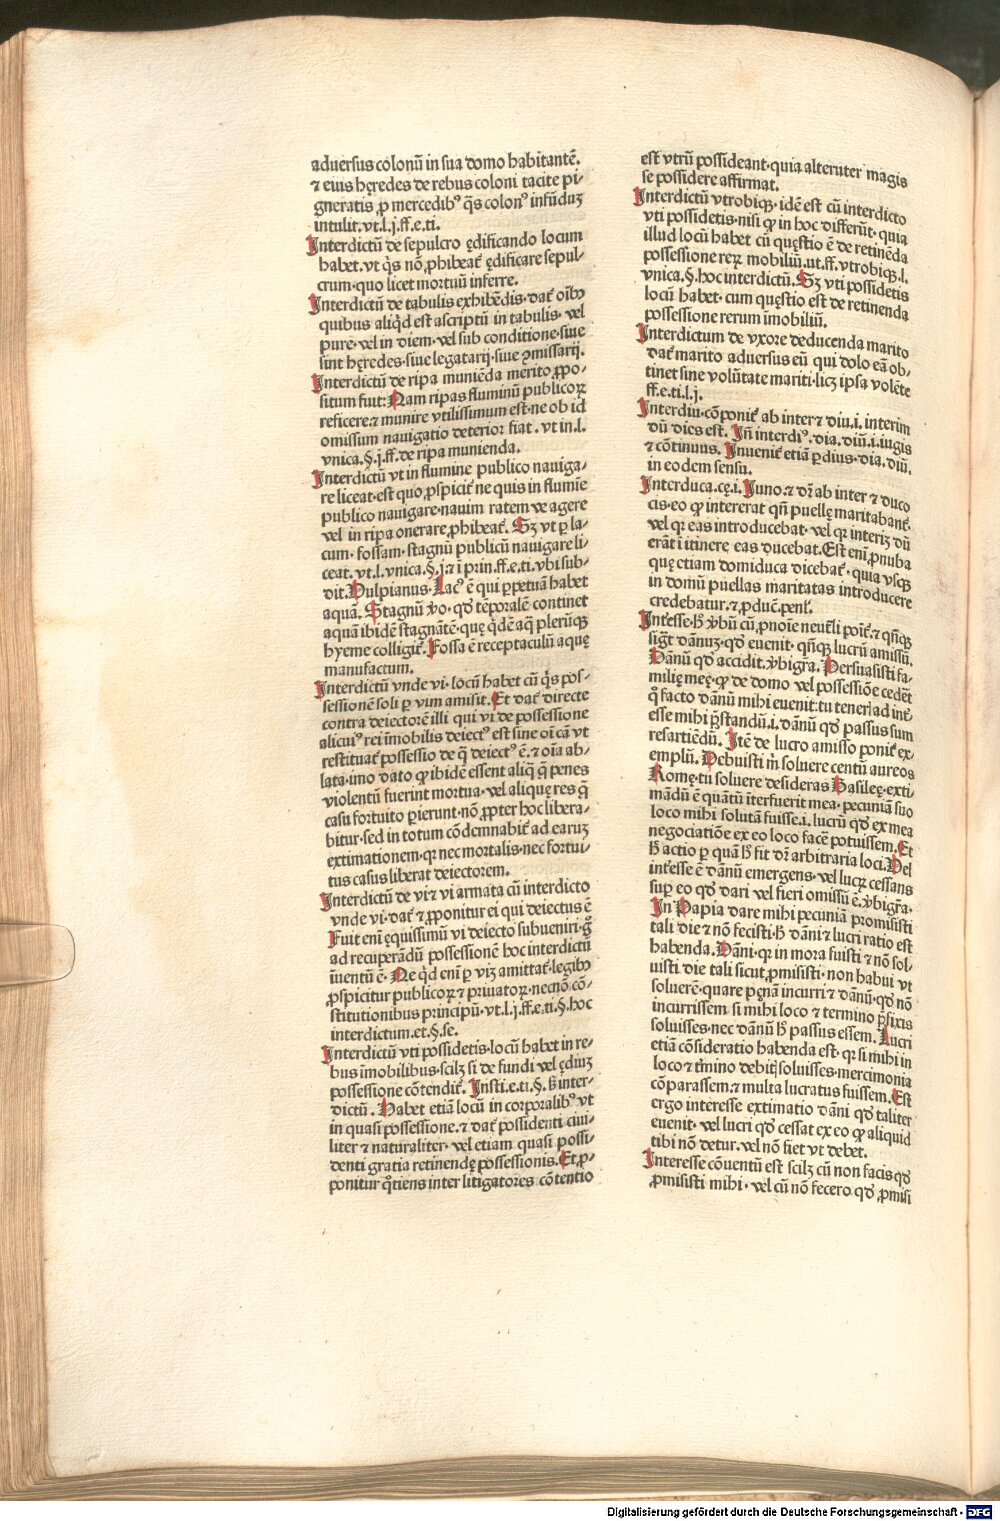 adversus colonū in sua domo habitantē.
⁊ eius hęredes de rebus coloni tacite pi⸗
gneratis ꝓ mercedibꝰ q̄s colonꝰ inſū duꝫ
intulit. vt.l.j.ff.e.ti.
Interdictū de sepulcro ędificando locum
habet. vt q̇s nō ꝓhibeat᷑ ędificare sepul⸗
crum·quo licet mortuū inferre.
Interdictū de tabulis exhibēdis·dat᷑ oībꝰ
quibus aliq̇d est ascriptū in tabulis· vel
pure·vel in diem·vel sub conditione·siue
sint hęredes·siue legatarij·siue ꝯmissarij.
Interdictū de ripa muniēda merito ꝓpo⸗
situm fuit: Nam ripas fluminū publicoꝝ
reficere:⁊ munire vtilissimum est·ne ob id
omissum nauigatio deterior fiat. vt in.l.
vnica.§.j.ff.de ripa munienda.
Interdictū vt in flumine publico nauiga⸗
re liceat·est quo ꝓspicit᷑ ne quis in flumīe
publico nauigare·nauim ratem ve agere
vel in ripa onerare ꝓhibeat᷑. Sꝫ vt ꝑ la⸗
cum· fossam·stagnū publicū nauigare li⸗
ceat. vt.l.vnica.§.j.⁊ ī prin.ff.e.ti.vbi sub⸗
dit. Vulpianus. Lacꝰ ē qui ꝑpetuā habet
aquā. Stagnū ꝟo·qd̓ tēporalē continet
aquā ibidē stagnātē·quę q̇dē aq̄ plerūqꝫ
hyeme colligit᷑. Fossa ē receptaculū aquę
manufactum.
Interdictū vnde vi·locū habet cū q̇s pos⸗
sessionē soli ꝑ vim amisit. Et dat᷑ directe
contra deiectorē illi qui vi de possessione
alicuiꝰ rei īmobilis deiectꝰ est sine oī cā vt
restituat᷑ possessio de q̄ deiectꝰ ē.⁊ oīa ab⸗
lata·imo dato ꝙ ibidē essent aliq̄ q̄ penes
violentū fuerint mortua·vel aliquę res q̄
casu fortuito ꝑierunt·nō ꝓpter hoc libera⸗
bitur·sed in totum cōdemnabit᷑ ad earuꝫ
extimationem·qꝛ nec mortalis·nec fortui⸗
tus casus liberat deiectorem.
Interdictū de vi ⁊ vi armata cū interdicto
vnde vi·dat᷑ ⁊ ꝓponitur ei qui deiectus ē
Fuit enī ęquissimū vi deiecto subueniri·g̊
ad recuperādū possessionē hoc interdictū
īuentū ē· Ne q̇d enī ꝑ vīꝫ amittat᷑·legibꝰ
ꝓspicitur publicoꝝ ⁊ priuatoꝝ·necnō cō⸗
stitutionibus principū·vt.l.j.ff.e.ti.§.hoc
interdictum.et.§.se.
Interdictū vti possidetis·locū habet in re⸗
bus īmobilibus·scilꝫ si de fundi vel ędiuꝫ
possessione cōtendit᷑. Insti.e.ti.§.ꝟ inter⸗
dictū. Habet etiā locū in corporalibꝰ vt
in quasi possessione.⁊ dat᷑ possidenti ciui⸗
liter ⁊ naturaliter· vel etiam quasi possi⸗
denti gratia retinendę possessionis. Et ꝓ⸗
ponitur q̊tiens inter litigatores cōtentio
est vtrū possideant·quia alteruter magis
se possidere affirmat.
Interdictū vtrobiqꝫ·idē est cū interdicto
vti possidetis·nisi ꝙ in hoc differūt· quia
illud locū habet cū quęstio ē de retinēda
possessione reꝝ mobiliū.ut.ff.vtrobiqꝫ.l.
vnica.§.hoc interdictū. Sꝫ vti possidetis
locū habet· cum quęstio est de retinenda
possessione rerum īmobiliū.
Interdictum de vxore deducenda marito
dat᷑ marito aduersus eū qui dolo eā ob⸗
tinet sine volūtate mariti·licꝫ ipsa volēte
ff.e.ti.l.j.
Interdiu·cōponit᷑ ab inter ⁊ diu.i. interim
dū dies est. Iñ interdiꝰ.dia.diū.i.iugis
⁊ cōtinuus. Inuenit᷑ etiā ꝑdius·dia.diū.
in eodem sensu.
Interduca.cę.i. Iuno.⁊ dr̄ ab inter ⁊ duco
cis·eo ꝙ intererat qn̄ puellę maritabant᷑·
vel qꝛ eas introducebat· vel qꝛ interiꝫ dū
erāt ī itinere eas ducebat. Est enī ꝓnuba
quę etiam domiduca dicebat᷑· quia vsqꝫ
in domū puellas maritatas introducere
credebatur.⁊ ꝓduc̄.penl᷑.
Int̄esse·h̄ ꝟbū cū ꝓnoīe neut̄li poīt᷑ ⁊ qn̄qꝫ
sigt̄ dānuꝫ·qd̓ euenit· qn̄qꝫ lucrū amissū.
Dānū qd̓ accidit.ꝟbigr̄a. Persuasisti fa⸗
milię meę·ꝙ de domo vel possessiōe cedēt
q̊ facto dānū mihi euenit:tu teneri ad int̄⸗
esse mihi p̄standū.i.dānū qd̓ passus sum
resartiēdū. Itē de lucro amisso ponit᷑ ex⸗
emplū. Debuisti m̄ soluere centū aureos
Romę·tu soluere desideras Basileę·exti⸗
mādū ē quātū īterfuerit mea· pecuniā suo
loco mihi solutā fuisse.i.lucrū qd̓ ex mea
negociatiōe ex eo loco facē potuissem. Et
h̄ actio ꝑ quā h̄ fit dr̄ arbitraria loci. Vel
int̄esse ē dānū emergens· vel lucꝝ cessans
suꝑ eo qd̓ dari vel fieri omissū ē.ꝟbigr̄a·
In Papia dare mihi pecuniā promisisti
tali die ⁊ nō fecisti·h̄ dāni ⁊ lucri ratio est
habenda. Dāni·qꝛ in mora fuisti ⁊ nō sol⸗
uisti die tali sicut ꝓmisisti· non habui vt
soluerē·quare pęnā incurri ⁊ dānū·qd̓ nō
incurrissem si mihi loco ⁊ termino p̄fixis
soluisses·nec dānū h̄ passus essem. Lucri
etiā cōsideratio habenda est· qꝛ si mihi in
loco ⁊ t̄mino debitꝭ soluisses·mercimonia
cōparassem.⁊ multa lucratus fuissem. Est
ergo interesse extimatio dāni qd̓ taliter
euenit· vel lucri qd̓ cessat ex eo ꝙ aliquid
tibi nō detur. vel nō fiet vt debet.
Interesse cōuentū est scilꝫ cū non facis qd̓
ꝓmisisti mihi· vel cū nō fecero qd̓ ꝓmisi
Digitalisierung gefördert durch die Deutsche Forschungsgemeinschaft - DFG